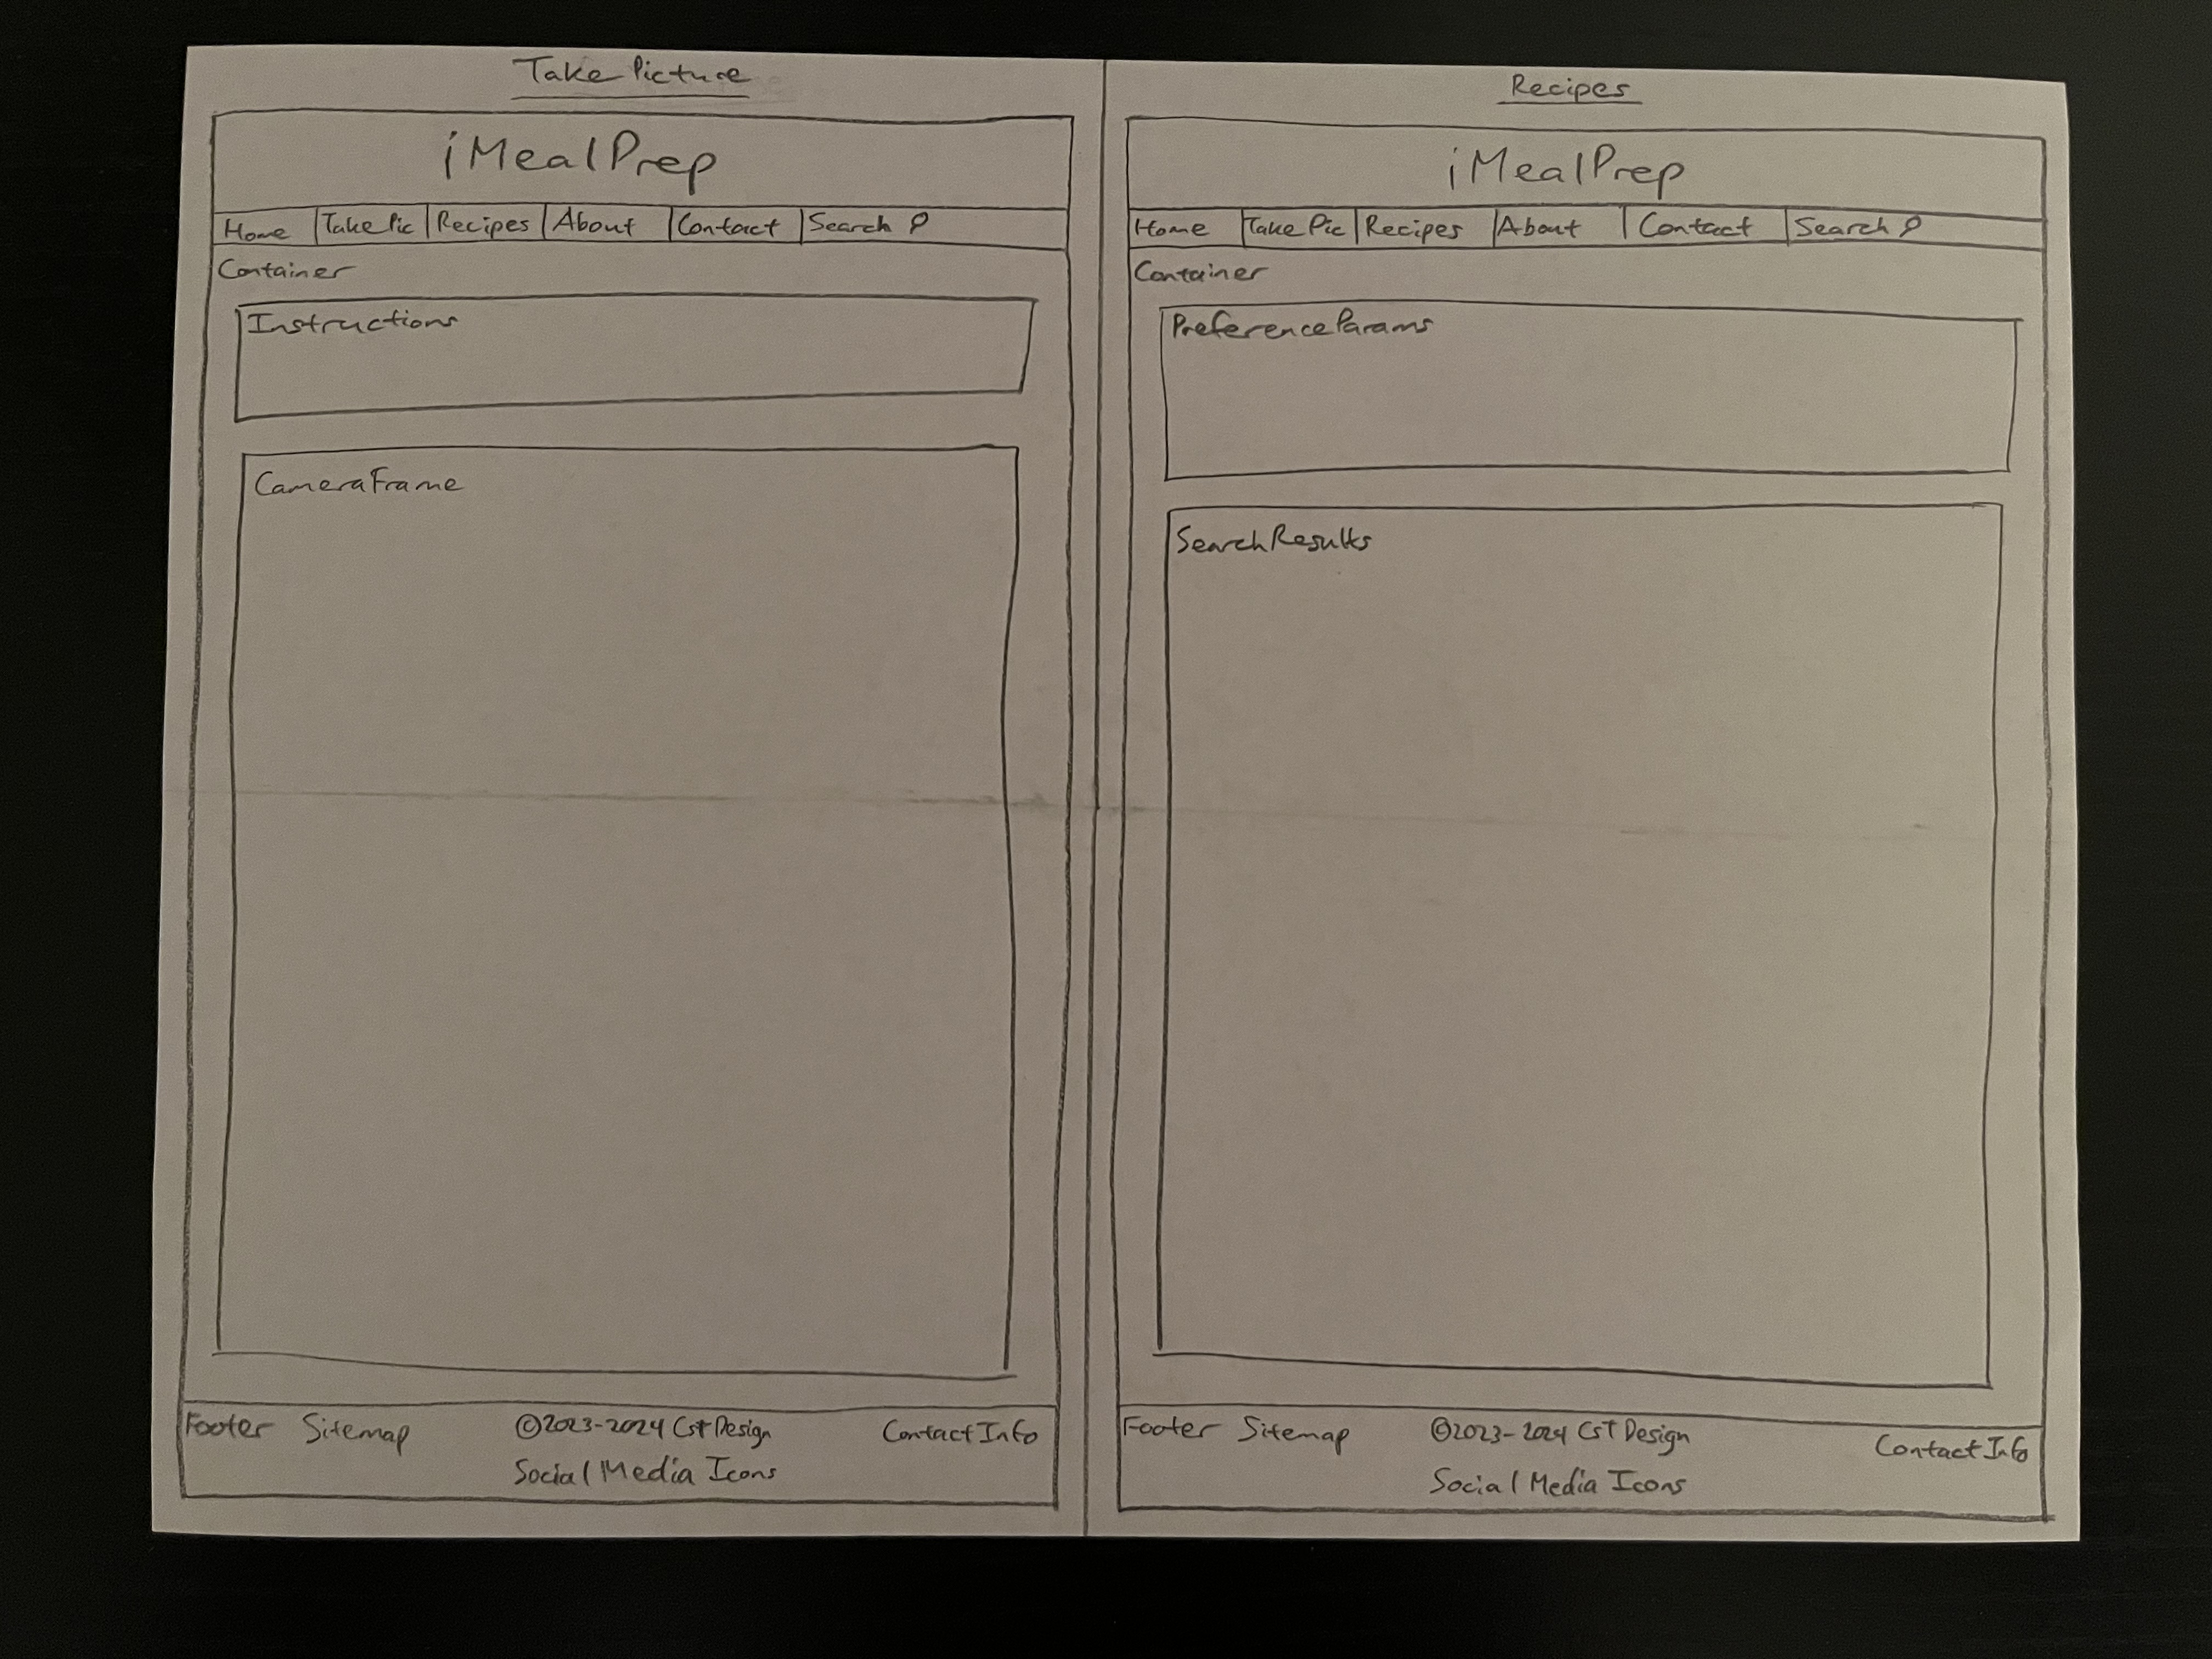 Take Picture
iMealPrep
Home Take Pic Recipes About Contact Search
Container
Instructions
CameraFrame
Footer Sitemap ©2023-2024 CST Design Contact Info
Social Media Icons
Recipes
iMealPrep
Home Take Pic Recipes About Contact Search
Container
PreferenceParams
SearchResults
Footer Sitemap ©2023-2024 CST Design Contact Info
Social Media Icons